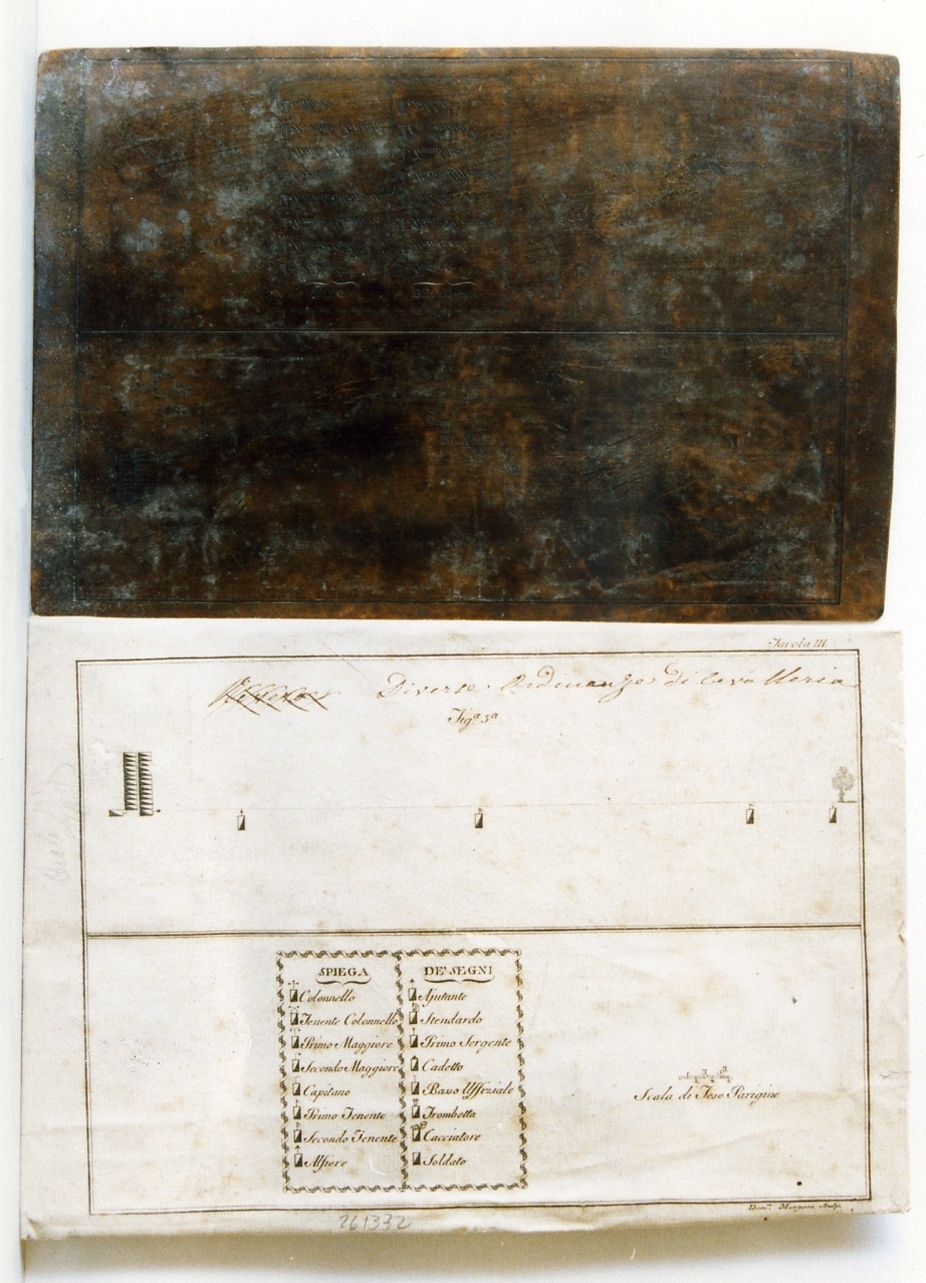 Tavola III.
Diverse Ordinanze di Cavalleria
Fig.ª 5ª
SPIEGA
Colonnello
Tenente Colonnello
Primo Maggiore
Secondo Maggiore
Capitano
Primo Tenente
Secondo Tenente
Alfiere
DE' SEGNI
Ajutante
Stendardo
Primo Sergente
Cadetto
Basso Uffiziale
Trombetta
Cacciatore
Soldato
Scala di Tese Parigine
261332